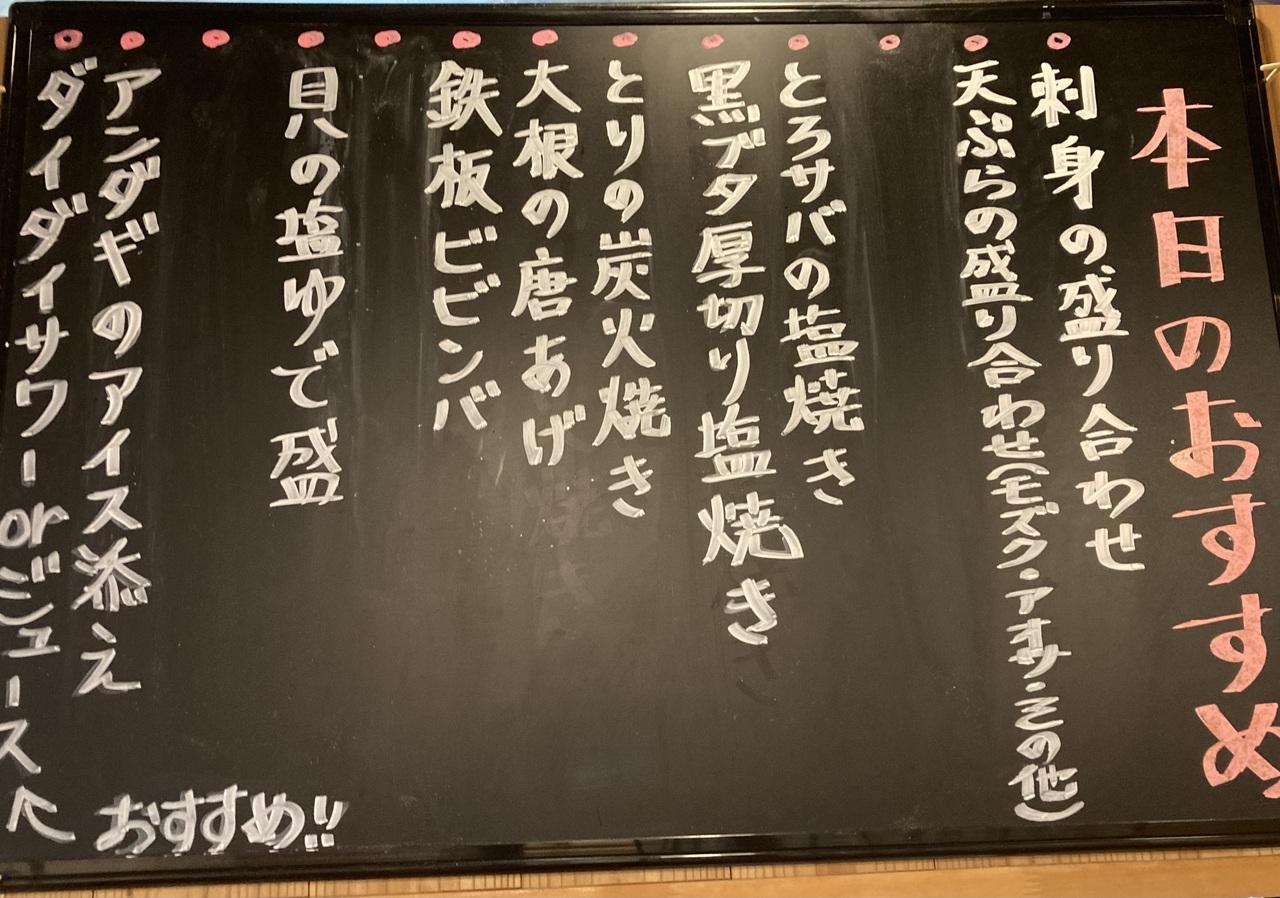 本日のおすすめ
刺身の盛り合わせ
天ぷらの盛り合わせ(モズク・アオサ・その他)
とろサバの塩焼き
黒ブタ厚切り塩焼き
とりの炭火焼き
大根の唐あげ
鉄板ビビンバ
貝の塩ゆで盛
アンダギのアイス添え
ダイダイサワーorジュース↖
おすすめ!!